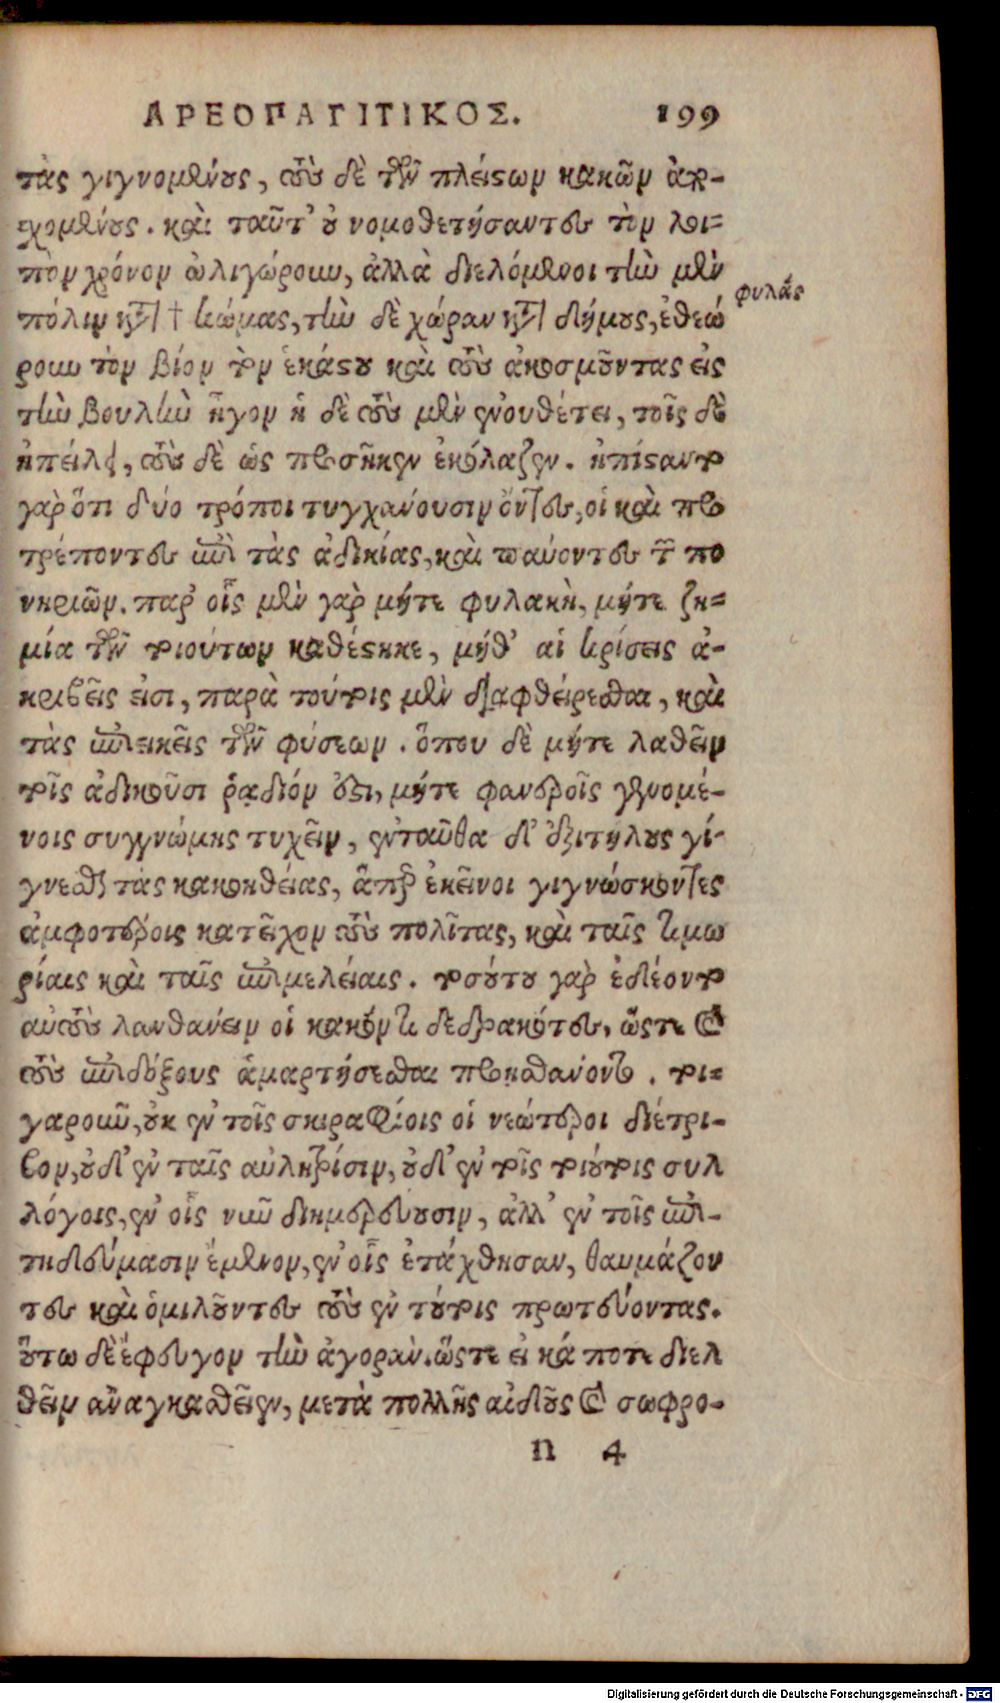 ΑΡΕΟΠΑΓΙΤΙΚΟΣ. 199
τὰς γιγνομένους, τοὺς δὲ τῶν πλείστων κακῶν ἀρ-
χομένους. καὶ ταῦτ' οὐ νομοθετήσαντες τὸν λοι-
πὸν χρόνον ὠλιγώρουν, ἀλλὰ διελόμενοι τὴν μὲν
πόλιν κατὰ † κώμας, τὴν δὲ χώραν κατὰ δήμους, ἐθεώ
φυλάς
ρουν τὸν βίον τὸν ἑκάστου καὶ τοὺς ἀκοσμοῦντας εἰς
τὴν βουλὴν ἦγον ἡ δὲ τοὺς μὲν ἐνουθέτει, τοῖς δὲ
ἠπείλει, τοὺς δὲ ὡς προσῆκεν ἐκόλαζεν. ἠπίσταντο
γὰρ ὅτι δύο τρόποι τυγχάνουσιν ὄντες, οἱ καὶ προ
τρέποντες ἐπὶ τὰς ἀδικίας, καὶ παύοντες τῶν πο
νηριῶν. παρ' οἷς μὲν γὰρ μήτε φυλακὴ, μήτε ζη-
μία τῶν τοιούτων καθέστηκε, μήθ' αἱ κρίσεις ἀ-
κριβεῖς εἰσι, παρὰ τούτοις μὲν διαφθείρεσθαι, καὶ
τὰς ἐπιεικεῖς τῶν φύσεων. ὅπου δὲ μήτε λαθεῖν
τοῖς ἀδικοῦσι ῥᾴδιόν ἐστι, μήτε φανεροῖς γενομέ-
νοις συγγνώμης τυχεῖν, ἐνταῦθα δ' ἐξιτήλους γί-
γνεσθαι τὰς κακοηθείας, ἅπερ ἐκεῖνοι γιγνώσκοντες
ἀμφοτέροις κατεῖχον τοὺς πολίτας, καὶ ταῖς τιμω
ρίαις καὶ ταῖς ἐπιμελείαις. τοσούτου γὰρ ἐδέοντο
αὐτοὺς λανθάνειν οἱ κακόν τι δεδρακότες, ὥστε καὶ
τοὺς ἐπιδόξους ἁμαρτήσεσθαι προῃσθάνοντο. τοι-
γαροῦν, οὐκ ἐν τοῖς σκιραφίοις οἱ νεώτεροι διέτρι-
βον, οὐδ' ἐν ταῖς αὐλητρίσιν, οὐδ' ἐν τοῖς τοιούτοις συλ
λόγοις, ἐν οἷς νῦν διημερεύουσιν, ἀλλ' ἐν τοῖς ἐπι-
τηδεύμασιν ἔμενον, ἐν οἷς ἐτάχθησαν, θαυμάζον
τες καὶ ὁμιλοῦντες τοὺς ἐν τούτοις πρωτεύοντας.
οὕτω δὲ ἔφευγον τὴν ἀγορὰν. ὥστε εἰ κά ποτε διελ
θεῖν ἀναγκασθεῖεν, μετὰ πολλῆς αἰδοῦς καὶ σωφρο-
n 4
Digitalisierung gefördert durch die Deutsche Forschungsgemeinschaft - DFG